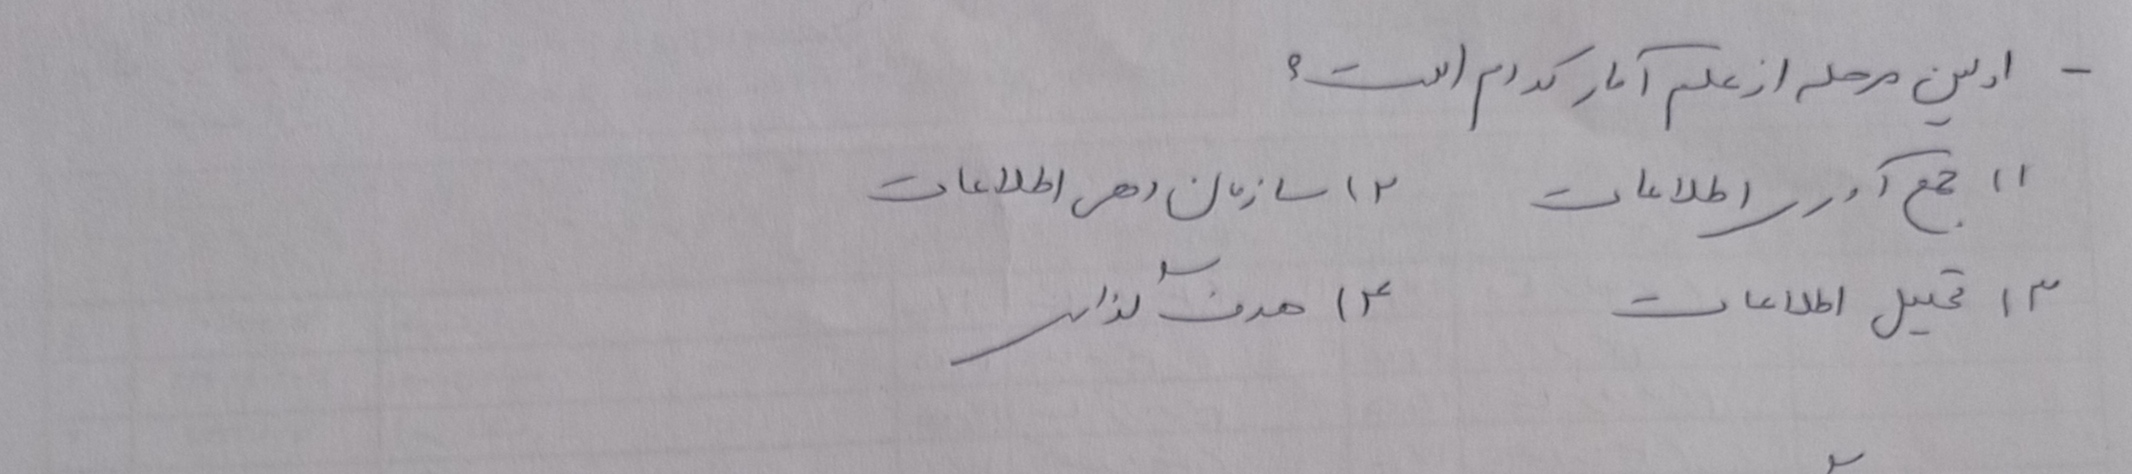 - اولین مرحله از علم آمار کدام است؟
۱) جمع آوری اطلاعات ۲) سازمان دهی اطلاعات
۳) تحلیل اطلاعات ۴) هدف گذاری